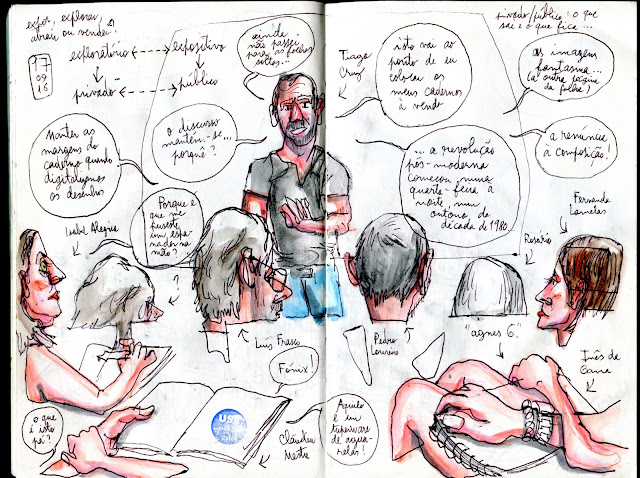 expor, explorar,
abrir ou vender?
17
09
16
exploratório
expositivo
privado
público
ainda
não passei
para as folhas
soltas...
Tiago
Cruz
isto vai ao
ponto de eu
colocar os
meus cadernos
à venda
privado/público: o que
sai e o que fica...
as imagens
fantasma...
(a outra página
da folha!)
Manter as
margens do
caderno quando
digitalizamos
os desenhos
o discurso
mantém-se...
porquê?
... a revolução
pós-moderna
começou numa
quarta-feira à
noite, num
outono da
década de 1980
a renúncia
à composição!
Isabel Alegria
Porque é
que me
puseste
um espa-
nador na
mão?
?
Rosário
Fernanda
Lamelas
Luís Frasco
Pedro
Loureiro
"agnes 6."
Inês de
o que
é isto
pá?
Fónix!
USk
Cláudia
Mestre
Aquilo
é um
tupperware
de agua-
relas!